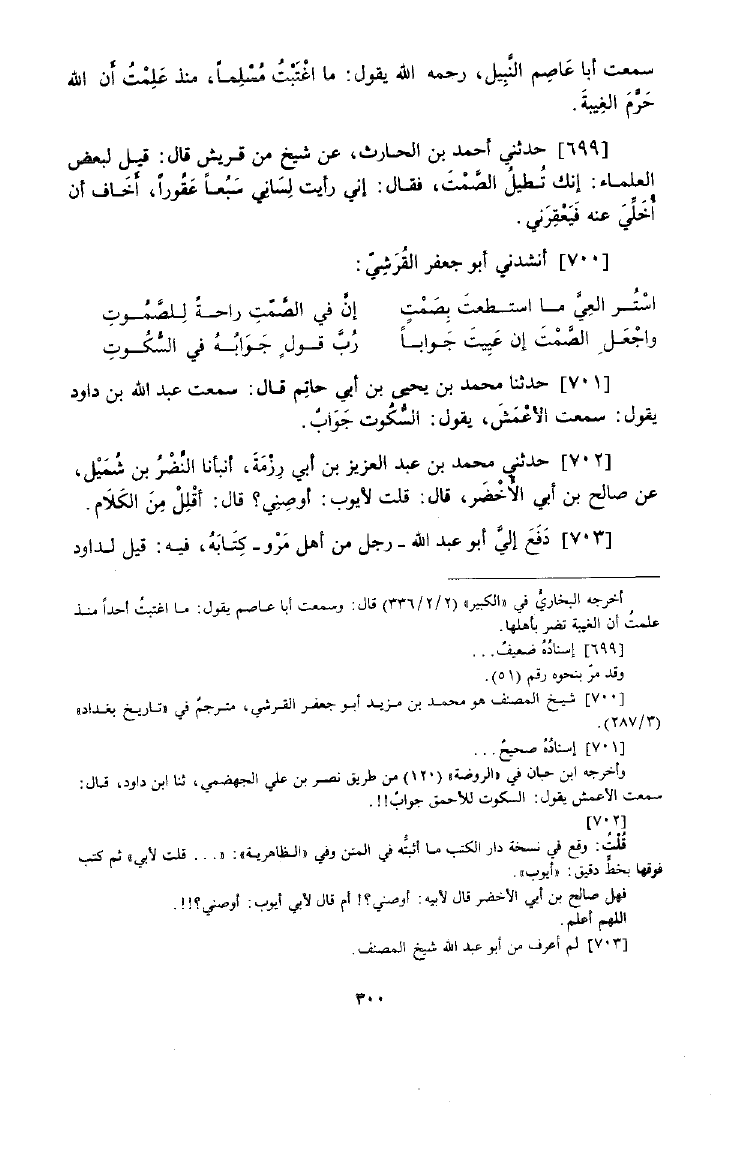 سمعت أبا عَاصِم النَّبِيل، رحمه الله يقول: ما اغْتَبْتُ مُسْلِماً، منذ عَلِمْتُ أَن الله
حَرَّمَ الغِيبةَ.
[٦٩٩] حدثني أحمد بن الحارث، عن شيخ من قريش قال: قيل لبعض
العلماء: إنك تُطيلُ الصَّمْتَ، فقال: إني رأيت لِسَاني سَبُعاً عَقُوراً، أَخَاف أن
أُخَلِّيَ عنه فَيَعْقِرَني.
[٧٠٠] أنشدني أبو جعفر القُرَشِيّ:
اسْتُر العِيَّ ما استطعتَ بِصَمْتٍ إنَّ في الصَّمْتِ راحةً لِلصَّمُوتِ
واجْعَلِ الصَّمْتَ إن عَيِيتَ جَواباً رُبَّ قولٍ جَوَابُهُ في السُّكُوتِ
[٧٠١] حدثنا محمد بن يحيى بن أبي حاتِم قال: سمعت عبد الله بن داود
يقول: سمعت الأعْمَشَ، يقول: السُّكُوت جَوَابٌ.
[٧٠٢] حدثني محمد بن عبد العزيز بن أبي رِزْمَةَ، أنبأنا النَّضْرُ بن شُمَيْل،
عن صالح بن أبي الأَخْضَر، قال: قلت لأيوب: أوصِنِي؟ قال: أقْلِلْ مِنَ الكَلَام.
[٧٠٣] دَفَعَ إليَّ أبو عبد الله ـ رجل من أهل مَرْو ـ كِتَابَهُ، فيه: قيل لداود
أخرجه البخاريُّ في «الكبير» (٢/٢/٣٣٦) قال: وسمعت أبا عاصم يقول: ما اغتبتُ أحداً منذ
علمتُ أن الغيبة تضر بأهلها.
[٦٩٩] إسنادُهُ ضعيفٌ...
وقد مرّ بنحوه رقم (٥١).
[٧٠٠] شيخ المصنف هو محمد بن مزيد أبو جعفر القرشي، مترجمٌ في «تاريخ بغداد»
(٢٨٧/٣).
[٧٠١] إسنادُهُ صحيحٌ...
وأخرجه ابن حبان في «الروضة» (١٢٠) من طريق نصر بن علي الجهضمي، ثنا ابن داود، قال:
سمعت الأعمش يقول: السكوت للأحمق جوابٌ!!.
[٧٠٢]
قُلْتُ: وقع في نسخة دار الكتب ما أثبتُّه في المتن وفي «الظاهرية»: «... قلت لأبي» ثم كتب
فوقها بخطٍّ دقيق: «أيوب».
فهل صالح بن أبي الأخضر قال لأبيه: أوصني؟! أم قال لأبي أيوب: أوصني؟!!.
اللهم أعلم.
[٧٠٣] لم أعرف من أبو عبد الله شيخ المصنف.
٣٠٠